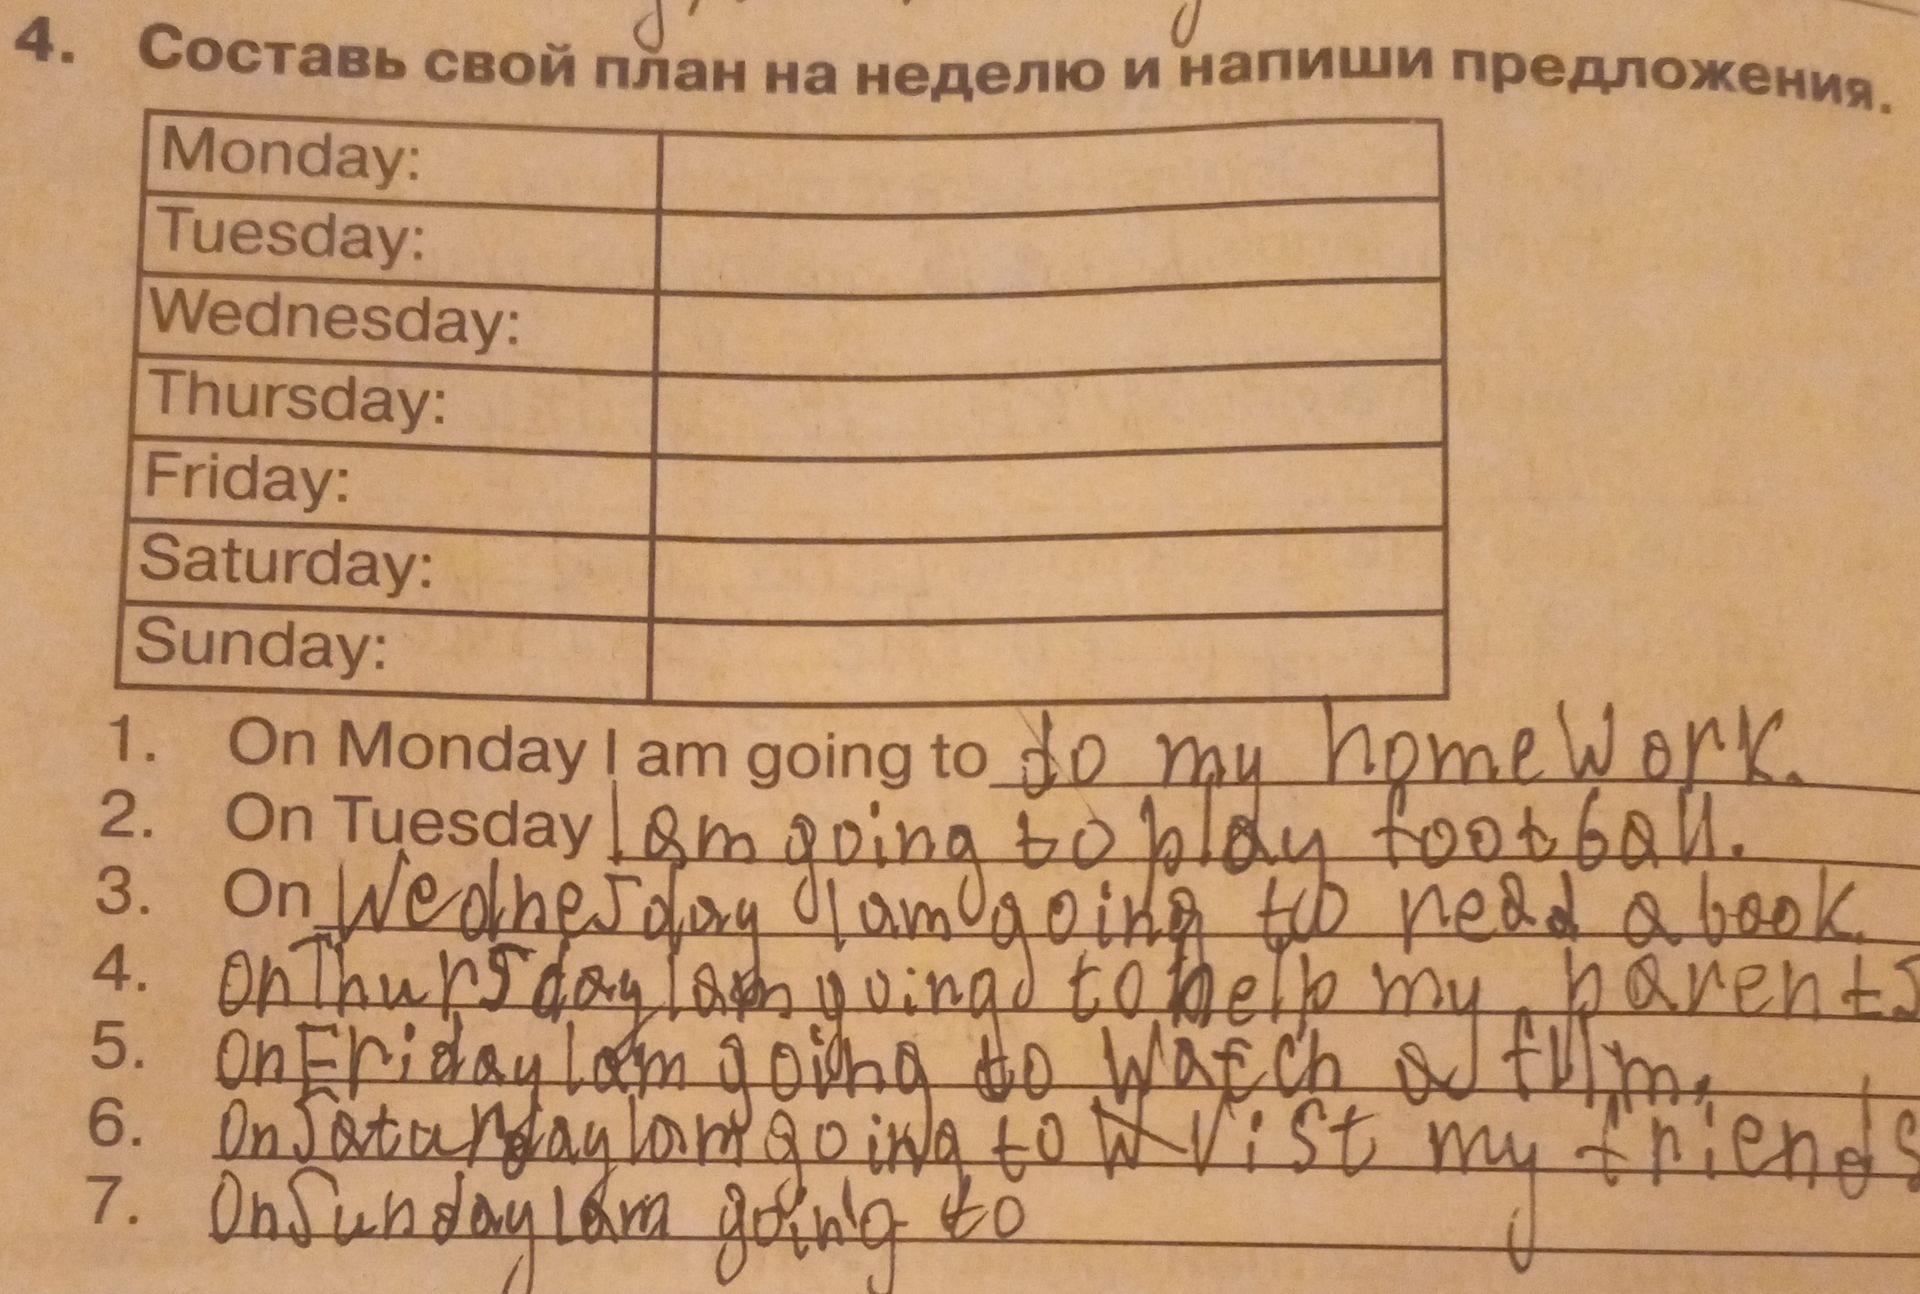 4. Составь свой план на неделю и напиши предложения.
Monday:
Tuesday:
Wednesday:
Thursday:
Friday:
Saturday:
Sunday:
1. On Monday I am going to do my homework.
2. On Tuesday I am going to play football.
3. On Wednesday I am going to read a book.
4. On Thursday I am going to help my parents
5. On Friday I am going to watch a film.
6. On Saturday I am going to vist my friends
7. On Sunday I am going to